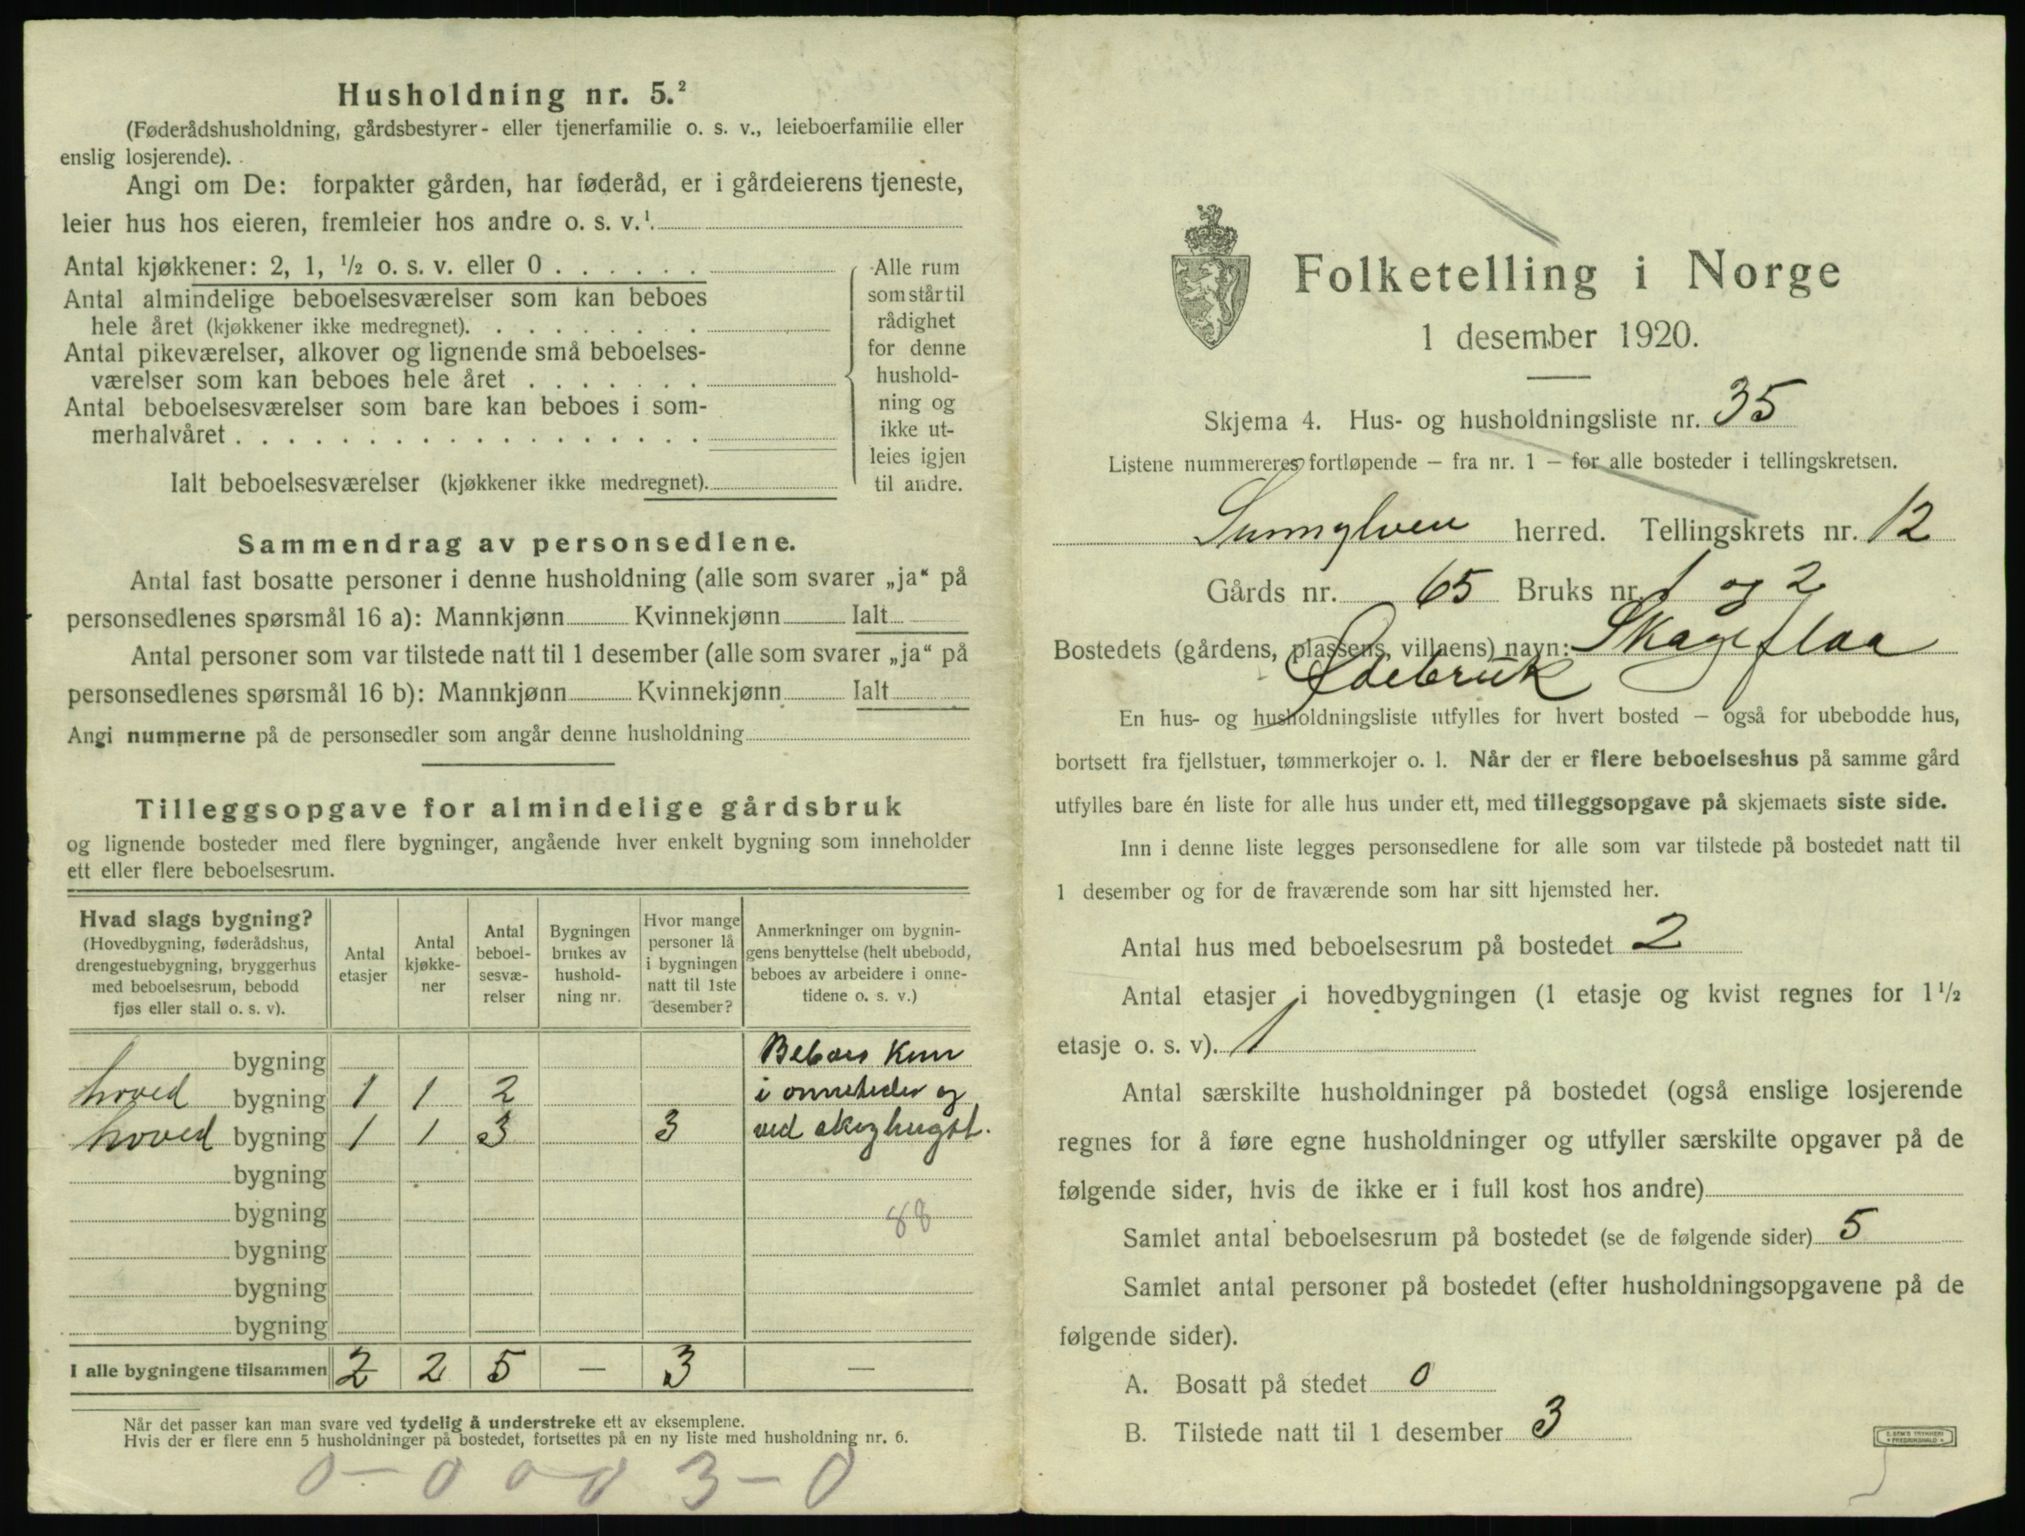 Husholdning nr. 5.²
(Føderådshusholdning, gårdsbestyrer- eller tjenerfamilie o. s. v., leieboerfamilie eller
enslig losjerende).
Angi om De: forpakter gården, har føderåd, er i gårdeierens tjeneste,
leier hus hos eieren, fremleier hos andre o. s. v.¹.
Antal kjøkkener: 2, 1, ½ o. s. v. eller 0 . . . . . .
Antal almindelige beboelsesværelser som kan beboes
hele året (kjøkkener ikke medregnet). . . . . . . . .
Antal pikeværelser, alkover og lignende små beboelses-
værelser som kan beboes hele året . . . . . . .
Antal beboelsesværelser som bare kan beboes i som-
merhalvåret . . . . . . . . . . . . . . . . . .
Ialt beboelsesværelser (kjøkkener ikke medregnet).
Alle rum
som står til
rådighet
for denne
hushold-
ning og
ikke ut-
leies igjen
til andre.
Sammendrag av personsedlene.
Antal fast bosatte personer i denne husholdning (alle som svarer „ja“ på
personsedlenes spørsmål 16 a): Mannkjønn Kvinnekjønn Ialt
Antal personer som var tilstede natt til 1 desember (alle som svarer „ja“ på
personsedlenes spørsmål 16 b): Mannkjønn Kvinnekjønn Ialt
Angi nummerne på de personsedler som angår denne husholdning
Tilleggsopgave for almindelige gårdsbruk
og lignende bosteder med flere bygninger, angående hver enkelt bygning som inneholder
ett eller flere beboelsesrum.
Hvad slags bygning?
(Hovedbygning, føderådshus,
drengestuebygning, bryggerhus
med beboelsesrum, bebodd
fjøs eller stall o. s. v).
Antal
etasjer
Antal
kjøkke-
ner
Antal
beboel-
sesvæ-
relser
Bygningen
brukes av
hushold-
ning nr.
Hvor mange
personer lå
i bygningen
natt til 1ste
desember?
Anmerkninger om bygnin-
gens benyttelse (helt ubebodd,
beboes av arbeidere i onne-
tidene o. s. v.)
bygning Beboes kun
hoved bygning 1 1 2 i onnetider og
hoved bygning 1 1 3 3 ved skoghugst.
bygning
bygning 88
bygning
bygning
bygning
I alle bygningene tilsammen 2 2 5 — 3 —
Når det passer kan man svare ved tydelig å understreke ett av eksemplene.
Hvis der er flere enn 5 husholdninger på bostedet, fortsettes på en ny liste med husholdning nr. 6.
0 - 0 0 0 3 - 0
Folketelling i Norge
1 desember 1920.
Skjema 4. Hus- og husholdningsliste nr. 35
Listene nummereres fortløpende – fra nr. 1 – for alle bosteder i tellingskretsen.
Sunnylven herred. Tellingskrets nr. 12
Gårds nr. 65 Bruks nr. 1 og 2
Bostedets (gårdens, plassens, villaens) navn: Skageflaa
Ødebruk
En hus- og husholdningsliste utfylles for hvert bosted – også for ubebodde hus,
bortsett fra fjellstuer, tømmerkojer o. l. Når der er flere beboelseshus på samme gård
utfylles bare én liste for alle hus under ett, med tilleggsopgave på skjemaets siste side.
Inn i denne liste legges personsedlene for alle som var tilstede på bostedet natt til
1 desember og for de fraværende som har sitt hjemsted her.
Antal hus med beboelsesrum på bostedet 2
Antal etasjer i hovedbygningen (1 etasje og kvist regnes for 1½
etasje o. s. v). 1
Antal særskilte husholdninger på bostedet (også enslige losjerende
regnes for å føre egne husholdninger og utfyller særskilte opgaver på de
følgende sider, hvis de ikke er i full kost hos andre)
Samlet antal beboelsesrum på bostedet (se de følgende sider) 5
Samlet antal personer på bostedet (efter husholdningsopgavene på de
følgende sider).
A. Bosatt på stedet 0
B. Tilstede natt til 1 desember 3